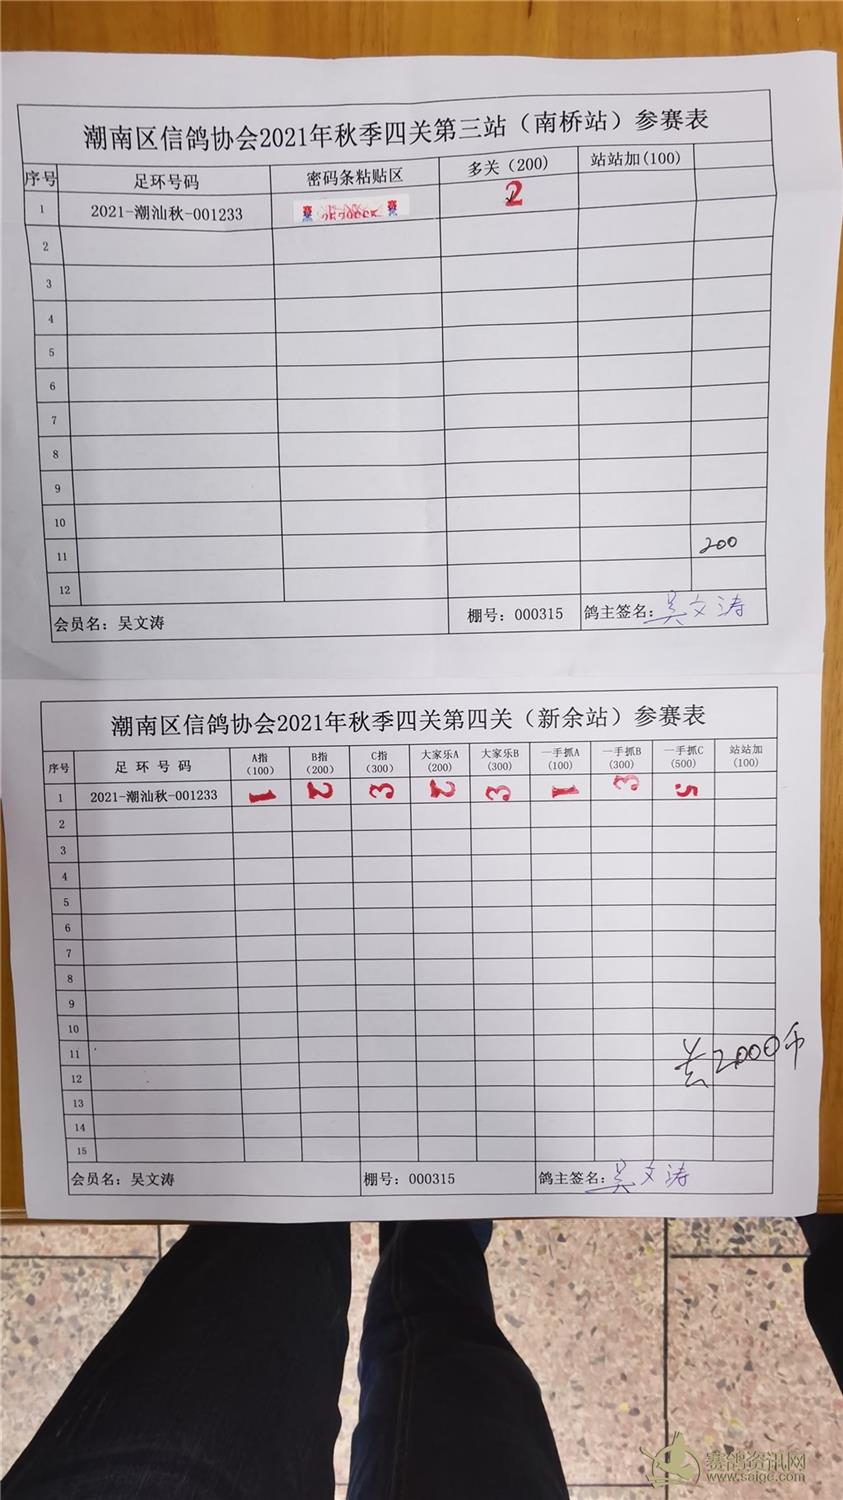 潮南区信鸽协会2021年秋季四关第三站（南桥站）参赛表
序号 足环号码 密码条粘贴区 多关（200） 站站加(100)
1 2021-潮汕秋-001233 2
2
3
4
5
6
7
8
9
10
11 200
12
会员名：吴文涛 棚号：000315 鸽主签名：吴文涛
潮南区信鸽协会2021年秋季四关第四关（新余站）参赛表
序号 足环号码 A指（100） B指（200） C指（300） 大家乐A（200） 大家乐B（300） 一手抓A（100） 一手抓B（300） 一手抓C（500） 站站加（100）
1 2021-潮汕秋-001233 1 2 3 2 3 1 3 5
2
3
4
5
6
7
8
9
10
11 共2000币
12
13
14
15
会员名：吴文涛 棚号：000315 鸽主签名：吴文涛
赛鸽资讯网
www.saige.com